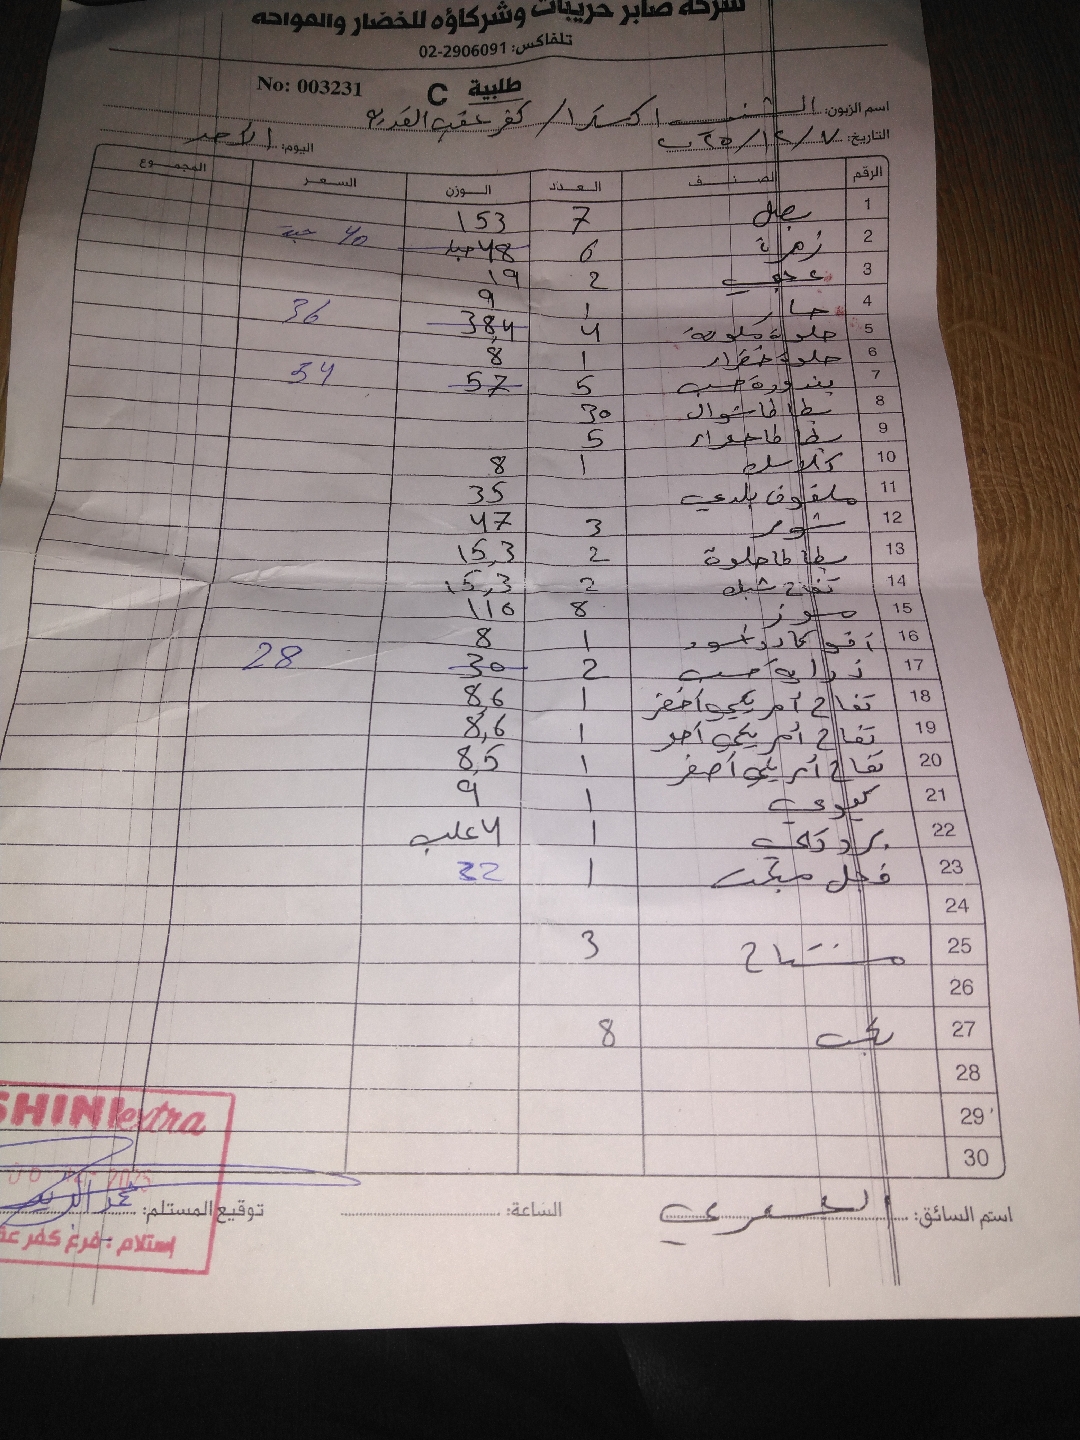 شركة صابر حريبات وشركاؤه للخضار والفواكه
تلفاكس: 02-2906091
طلبية C No: 003231
اسم الزبون: الشني اكسترا / كفر عقب القديمة
التاريخ: ٢٠٢٥/١٢/٧ اليوم: الاحد
الرقم الصنف العدد الوزن السعر المجموع
1 بصل 7 153
2 زهرة 6 48 حبة 40 حبة
3 عجمي 2 19
4 خيار 1 9
5 حلوة ملونة 4 38,4 36
6 حلوة خضراء 1 8
7 بندورة حب 5 57 54
8 بطاطا شوال 30
9 بطاطا حمراء 5
10 1 8
11 ملفوف بلدي 35
12 ثوم 3 47
13 بطاطا حلوة 2 15,3
14 تفاح 2 15,3
15 موز 8 116
16 أفوكادو اسود 1 8
17 حب 2 30 28
18 تفاح أمريكي أخضر 1 8,6
19 تفاح أمريكي أحمر 1 8,6
20 تفاح أمريكي أصفر 1 8,5
21 كيوي 1 9
22 1 4 علب
23 فجل 1 32
24
25 مشتاح 3
26
27 8
28
29
30
SHINI extra
2025
استلام: فرع كفر
اسم السائق: الساعة: توقيع المستلم: